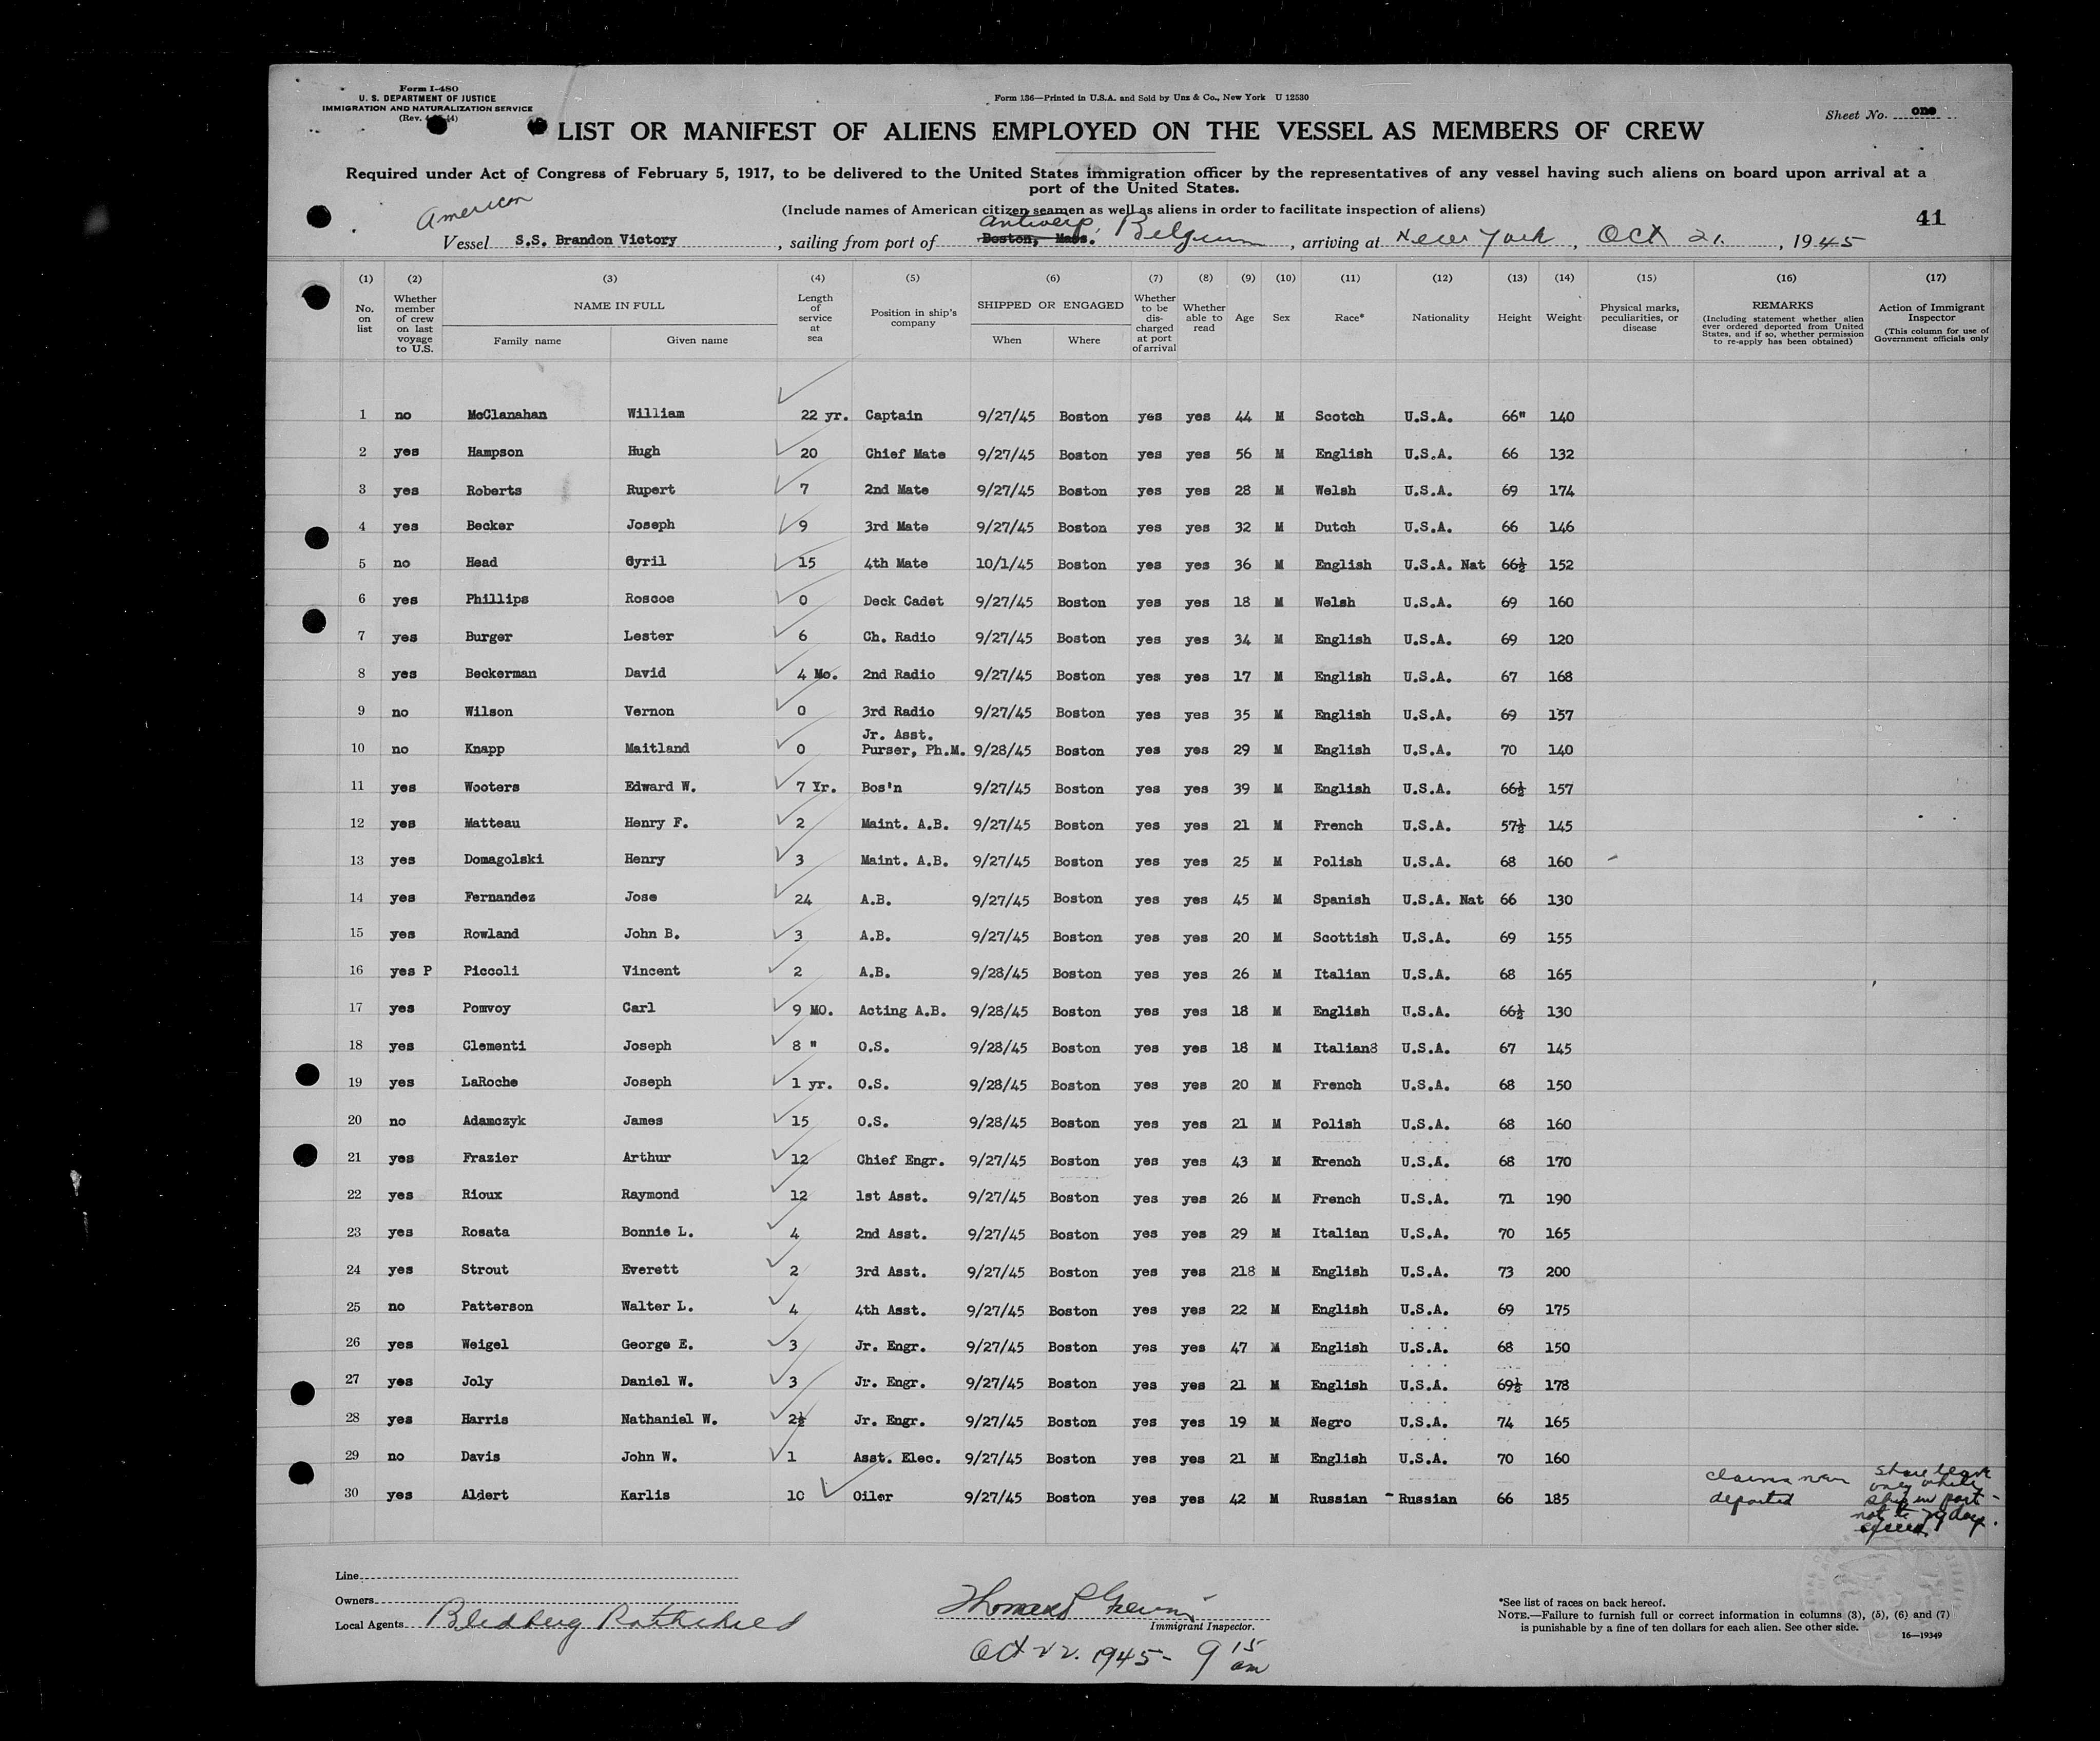 Form I-480
U. S. DEPARTMENT OF JUSTICE
IMMIGRATION AND NATURALIZATION SERVICE
(Rev.
Form 136—Printed in U.S.A. and Sold by Unz & Co., New York U 12530
Sheet No. one
LIST OR MANIFEST OF ALIENS EMPLOYED ON THE VESSEL AS MEMBERS OF CREW
Required under Act of Congress of February 5, 1917, to be delivered to the United States immigration officer by the representatives of any vessel having such aliens on board upon arrival at a
port of the United States.
(Include names of American citizen seamen as well as aliens in order to facilitate inspection of aliens)
41
American
Antwerp,
Vessel S.S. Brandon Victory, sailing from port of Boston, Mass. Belgium, arriving at New York, Oct 21, 1945
(1) (2) (3) (4) (5) (6) (7) (8) (9) (10) (11) (12) (13) (14) (15) (16) (17)
No. on list
Whether member of crew on last voyage to U.S.
NAME IN FULL
Family name Given name
Length of service at sea
Position in ship's company
SHIPPED OR ENGAGED
When Where
Whether to be discharged at port of arrival
Whether able to read
Age
Sex
Race*
Nationality
Height
Weight
Physical marks, peculiarities, or disease
REMARKS
(Including statement whether alien ever ordered deported from United States, and if so, whether permission to re-apply has been obtained)
Action of Immigrant Inspector
(This column for use of Government officials only
1 no McClanahan William 22 yr. Captain 9/27/45 Boston yes yes 44 M Scotch U.S.A. 66" 140
2 yes Hampson Hugh 20 Chief Mate 9/27/45 Boston yes yes 56 M English U.S.A. 66 132
3 yes Roberts Rupert 7 2nd Mate 9/27/45 Boston yes yes 28 M Welsh U.S.A. 69 174
4 yes Becker Joseph 9 3rd Mate 9/27/45 Boston yes yes 32 M Dutch U.S.A. 66 146
5 no Head Cyril 15 4th Mate 10/1/45 Boston yes yes 36 M English U.S.A. Nat 66½ 152
6 yes Phillips Roscoe 0 Deck Cadet 9/27/45 Boston yes yes 18 M Welsh U.S.A. 69 160
7 yes Burger Lester 6 Ch. Radio 9/27/45 Boston yes yes 34 M English U.S.A. 69 120
8 yes Beckerman David 4 Mo. 2nd Radio 9/27/45 Boston yes yes 17 M English U.S.A. 67 168
9 no Wilson Vernon 0 3rd Radio 9/27/45 Boston yes yes 35 M English U.S.A. 69 157
10 no Knapp Maitland 0 Jr. Asst. Purser, Ph.M. 9/28/45 Boston yes yes 29 M English U.S.A. 70 140
11 yes Wooters Edward W. 7 Yr. Bos'n 9/27/45 Boston yes yes 39 M English U.S.A. 66½ 157
12 yes Matteau Henry F. 2 Maint. A.B. 9/27/45 Boston yes yes 21 M French U.S.A. 57½ 145
13 yes Domagolski Henry 3 Maint. A.B. 9/27/45 Boston yes yes 25 M Polish U.S.A. 68 160
14 yes Fernandez Jose 24 A.B. 9/27/45 Boston yes yes 45 M Spanish U.S.A. Nat 66 130
15 yes Rowland John B. 3 A.B. 9/27/45 Boston yes yes 20 M Scottish U.S.A. 69 155
16 yes P Piccoli Vincent 2 A.B. 9/28/45 Boston yes yes 26 M Italian U.S.A. 68 165
17 yes Pomvoy Carl 9 MO. Acting A.B. 9/28/45 Boston yes yes 18 M English U.S.A. 66½ 130
18 yes Clementi Joseph 8 " O.S. 9/28/45 Boston yes yes 18 M Italian8 U.S.A. 67 145
19 yes LaRoche Joseph 1 yr. O.S. 9/28/45 Boston yes yes 20 M French U.S.A. 68 150
20 no Adamczyk James 15 O.S. 9/28/45 Boston yes yes 21 M Polish U.S.A. 68 160
21 yes Frazier Arthur 12 Chief Engr. 9/27/45 Boston yes yes 43 M French U.S.A. 68 170
22 yes Rioux Raymond 12 1st Asst. 9/27/45 Boston yes yes 26 M French U.S.A. 71 190
23 yes Rosata Bonnie L. 4 2nd Asst. 9/27/45 Boston yes yes 29 M Italian U.S.A. 70 165
24 yes Strout Everett 2 3rd Asst. 9/27/45 Boston yes yes 218 M English U.S.A. 73 200
25 no Patterson Walter L. 4 4th Asst. 9/27/45 Boston yes yes 22 M English U.S.A. 69 175
26 yes Weigel George E. 3 Jr. Engr. 9/27/45 Boston yes yes 47 M English U.S.A. 68 150
27 yes Joly Daniel W. 3 Jr. Engr. 9/27/45 Boston yes yes 21 M English U.S.A. 69½ 178
28 yes Harris Nathaniel W. 2½ Jr. Engr. 9/27/45 Boston yes yes 19 M Negro U.S.A. 74 165
29 no Davis John W. 1 Asst. Elec. 9/27/45 Boston yes yes 21 M English U.S.A. 70 160
30 yes Aldert Karlis 10 Oiler 9/27/45 Boston yes yes 42 M Russian - Russian 66 185 claims never deported shore leave only while ship in port - not to 29 days
Line
Owners
Local Agents Bleidberg Rothchild
Thomas
Immigrant Inspector.
Oct 22. 1945- 9 15 am
*See list of races on back hereof.
NOTE.—Failure to furnish full or correct information in columns (3), (5), (6) and (7)
is punishable by a fine of ten dollars for each alien. See other side.
16—19349